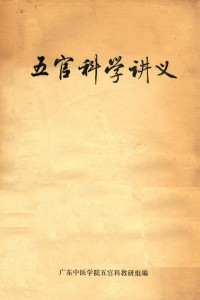 五官科学讲义
广东中医学院五官科教研组编